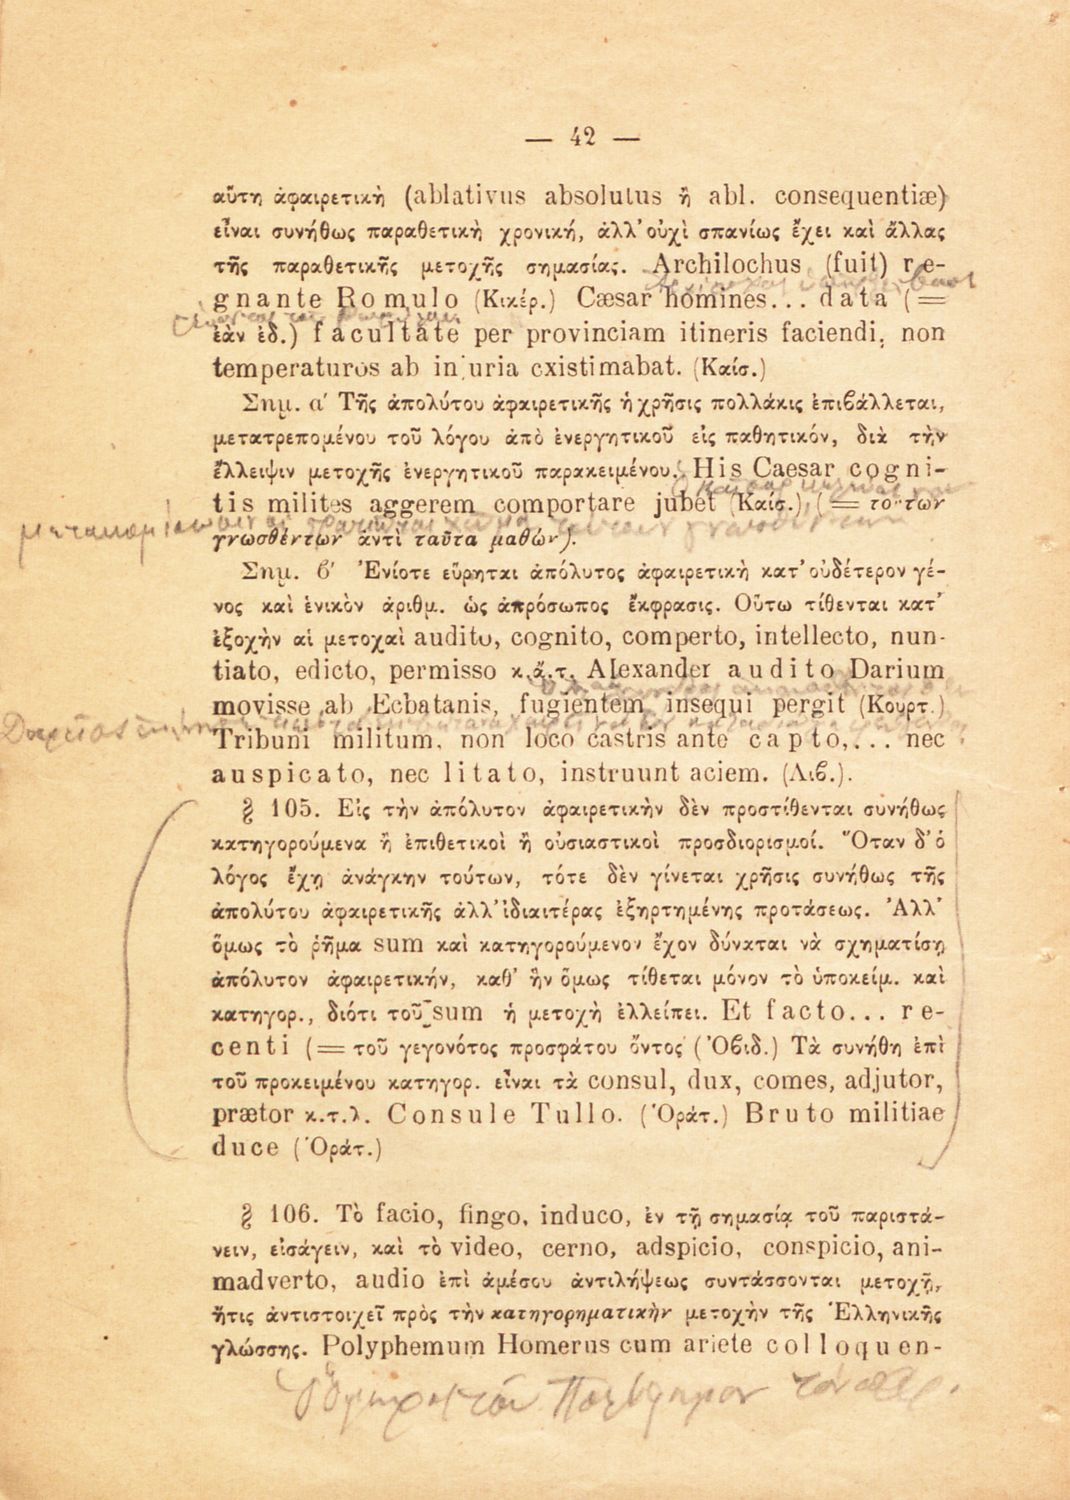 — 42 —
αὕτη ἀφαιρετικὴ (ablativus absolutus ἢ abl. consequentiæ)
εἶναι συνήθως παραθετικὴ χρονική, ἀλλ' οὐχὶ σπανίως ἔχει καὶ ἄλλας
τῆς παραθετικῆς μετοχῆς σημασίας. Archilochus (fuit) re-
gnante Romulo (Κικέρ.) Cæsar homines... data (=
ἐὰν ἐδ.) facultate per provinciam itineris faciendi, non
temperaturos ab injuria existimabat. (Καίσ.)
Σημ. α' Τῆς ἀπολύτου ἀφαιρετικῆς ἡ χρῆσις πολλάκις ἐπιβάλλεται,
μετατρεπομένου τοῦ λόγου ἀπὸ ἐνεργητικοῦ εἰς παθητικόν, διὰ τὴν
ἔλλειψιν μετοχῆς ἐνεργητικοῦ παρακειμένου. His Caesar cogni-
tis milites aggerem comportare jubet (Καίσ.) (= το·των
γνωσθέντων ἀντὶ ταῦτα μαθών).
Σημ. β' Ἐνίοτε εὕρηται ἀπόλυτος ἀφαιρετικὴ κατ' οὐδέτερον γέ-
νος καὶ ἑνικὸν ἀριθμ. ὡς ἀπρόσωπος ἔκφρασις. Οὕτω τίθενται κατ'
ἐξοχὴν αἱ μετοχαὶ audito, cognito, comperto, intellecto, nun-
tiato, edicto, permisso κ.ἄ.τ. Alexander audito Darium
movisse ab Ecbatanis, fugientem insequi pergit (Κουρτ.)
Δαρεῖος
Tribuni militum, non loco castris ante capto,... nec
auspicato, nec litato, instruunt aciem. (Λιβ.).
§ 105. Εἰς τὴν ἀπόλυτον ἀφαιρετικὴν δὲν προστίθενται συνήθως
κατηγορούμενα ἢ ἐπιθετικοὶ ἢ οὐσιαστικοὶ προσδιορισμοί. Ὅταν δ' ὁ
λόγος ἔχῃ ἀνάγκην τούτων, τότε δὲν γίνεται χρῆσις συνήθως τῆς
ἀπολύτου ἀφαιρετικῆς ἀλλ' ἰδιαιτέρας ἐξηρτημένης προτάσεως. Ἀλλ'
ὅμως τὸ ῥῆμα sum καὶ κατηγορούμενον ἔχον δύναται νὰ σχηματίσῃ
ἀπόλυτον ἀφαιρετικήν, καθ' ἣν ὅμως τίθεται μόνον τὸ ὑποκείμ. καὶ
κατηγορ., διότι τοῦ sum ἡ μετοχὴ ἐλλείπει. Et facto... re-
centi (= τοῦ γεγονότος προσφάτου ὄντος (Ὀβιδ.) Τὰ συνήθη ἐπὶ
τοῦ προκειμένου κατηγορ. εἶναι τὰ consul, dux, comes, adjutor,
prætor κ.τ.λ. Consule Tullo. (Ὁράτ.) Bruto militiae
duce (Ὁράτ.)
§ 106. Τὸ facio, fingo, induco, ἐν τῇ σημασίᾳ τοῦ παριστά-
νειν, εἰσάγειν, καὶ τὸ video, cerno, adspicio, conspicio, ani-
madverto, audio ἐπὶ ἀμέσου ἀντιλήψεως συντάσσονται μετοχῇ,
ἥτις ἀντιστοιχεῖ πρὸς τὴν κατηγορηματικὴν μετοχὴν τῆς Ἑλληνικῆς
γλώσσης. Polyphemum Homerus cum ariete colloquen-
Ὅμηρος τὸν Πολύφημον